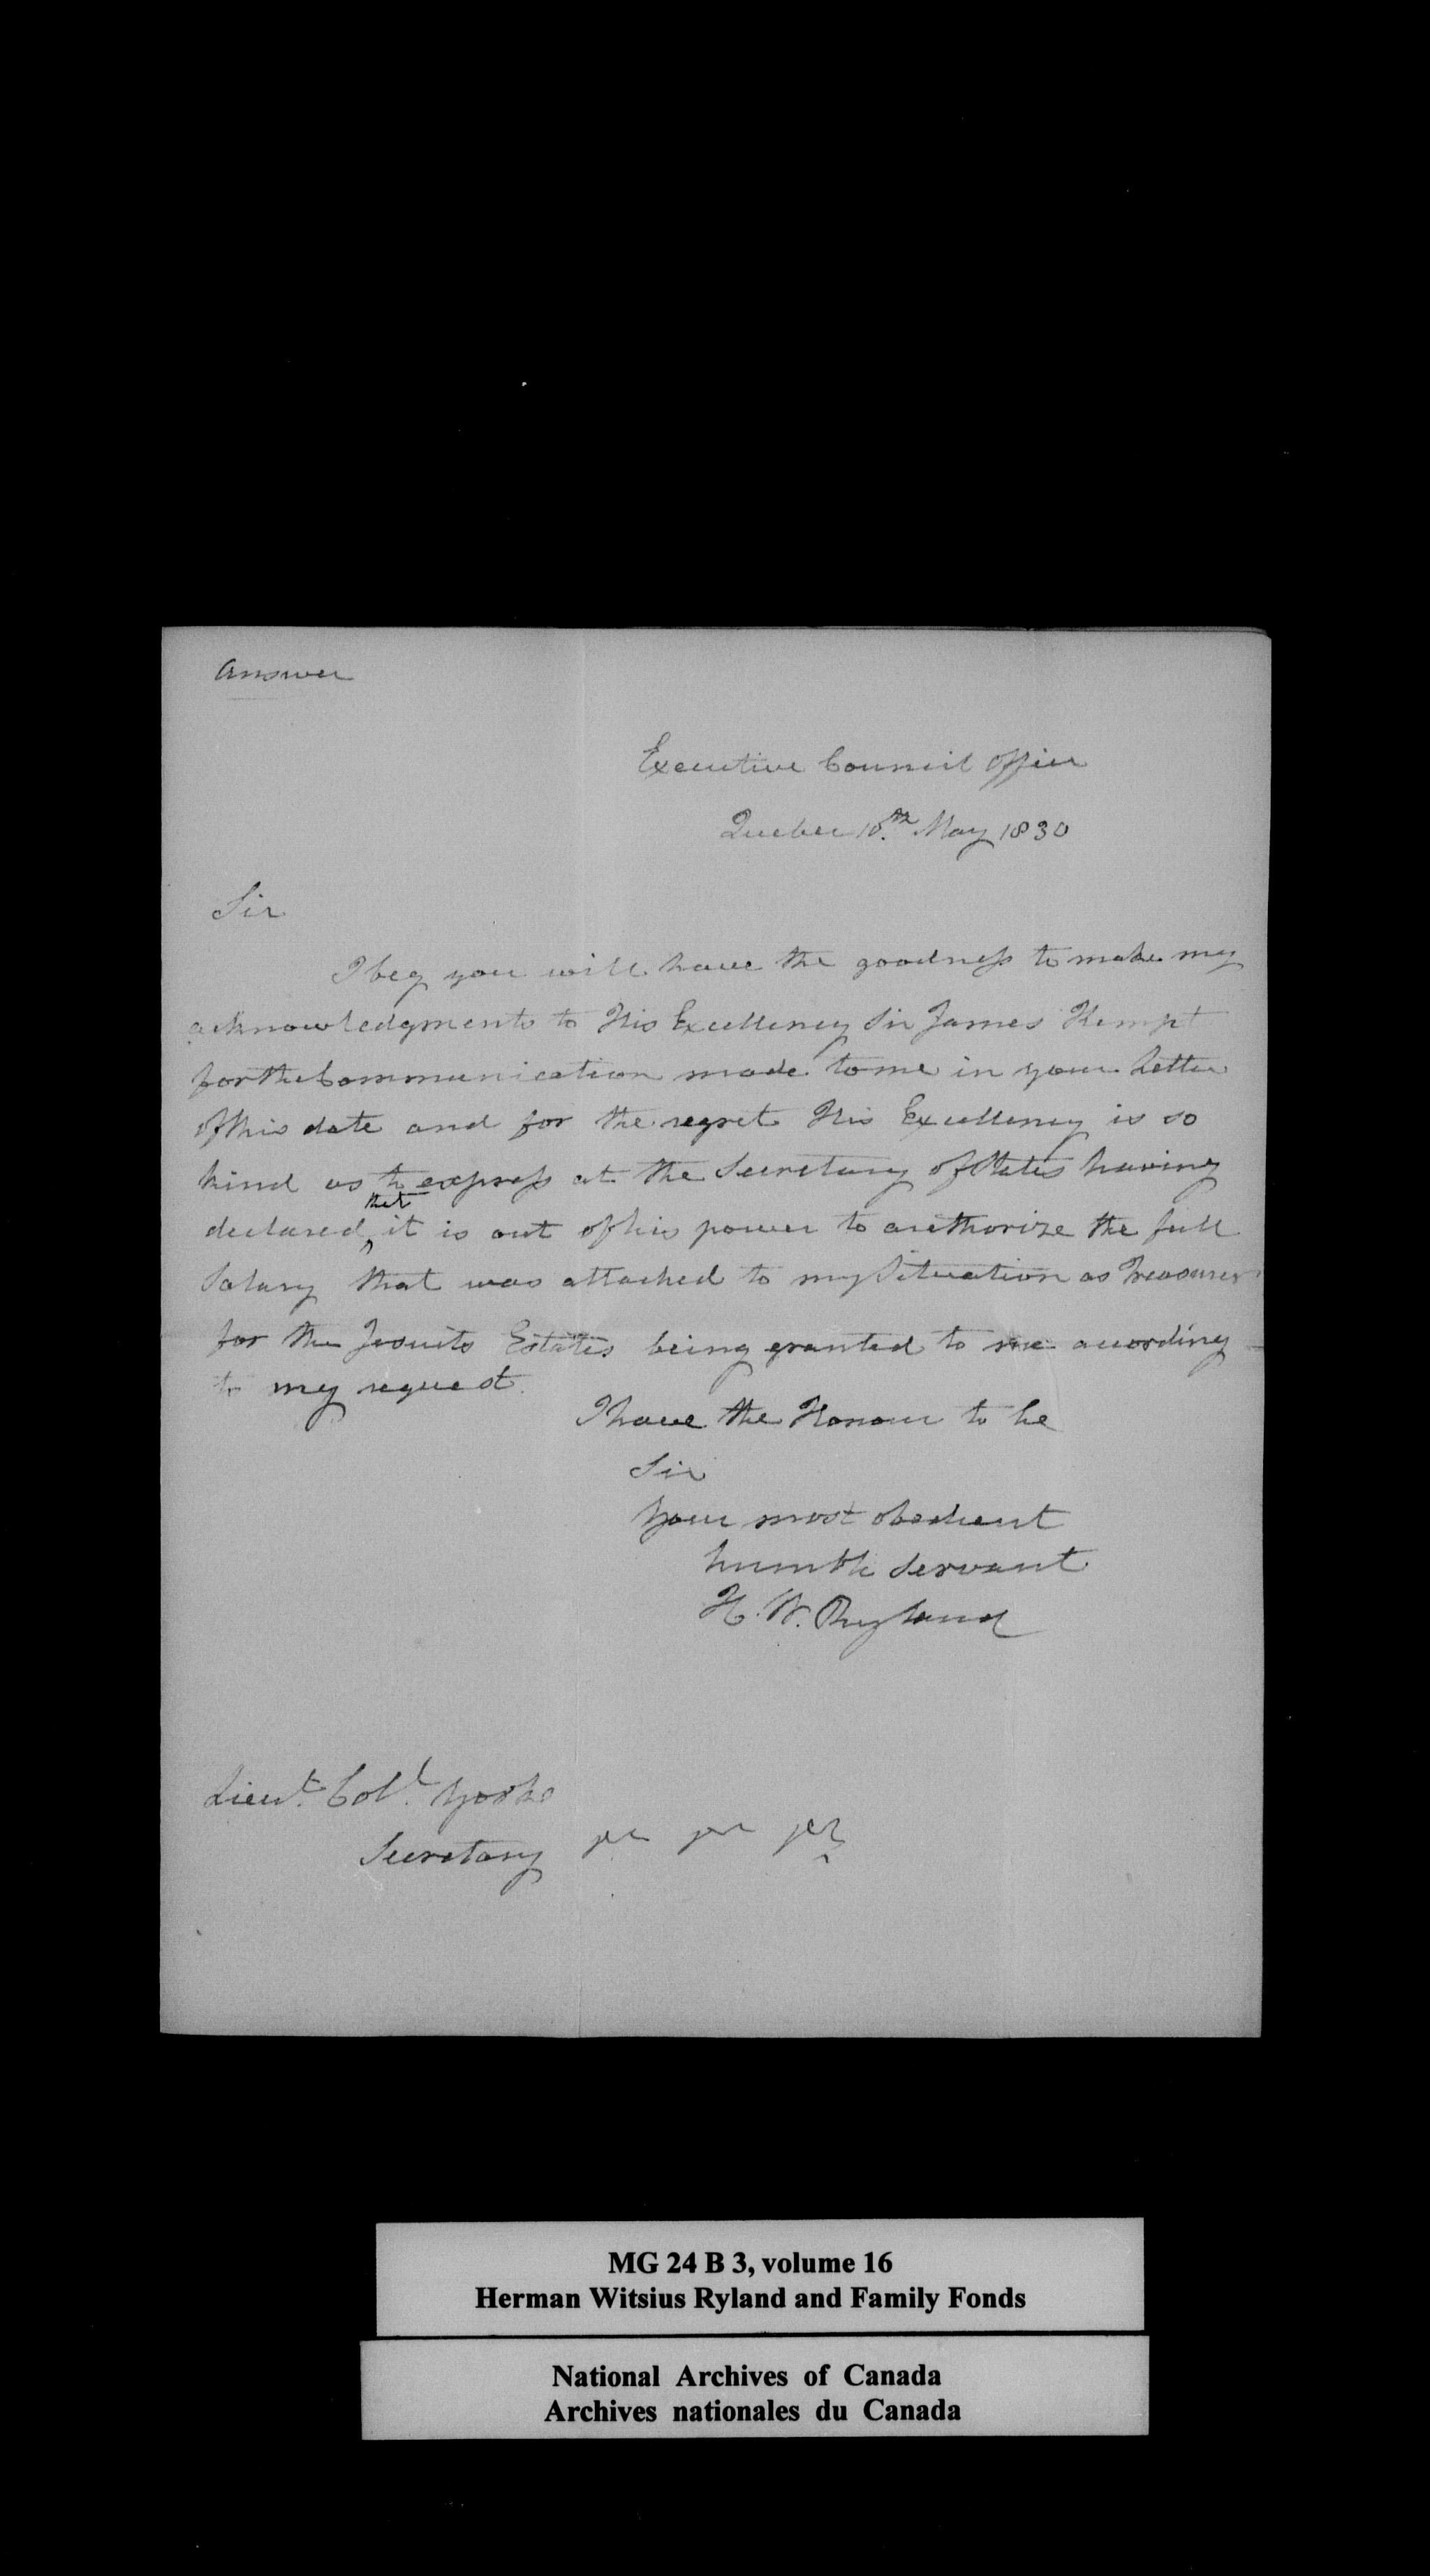 Answer
Executive Council Office
Quebec 10.th May 1830
Sir
I beg you will have the goodness to make my
acknowledgments to His Excellency Sir James Kempt
for the Communication made to me in your Letter
of this date and for the regret His Excellency is so
kind as to express at the Secretary of States having
declared that it is out of his power to authorize the full
Salary that was attached to my Situation as Treasurer
for the Jesuits Estates being granted to me according
to my request.
I have the Honour to be
Sir
Your most obedient
humble Servant
H. W. Ryland
Lieut. Coll. Yorke
Secretary
MG 24 B 3, volume 16
Herman Witsius Ryland and Family Fonds
National Archives of Canada
Archives nationales du Canada